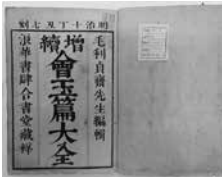 明治十丁丑七刻
毛利貞齋先生編輯
增續會玉篇大全
浪華書肆合書堂藏梓